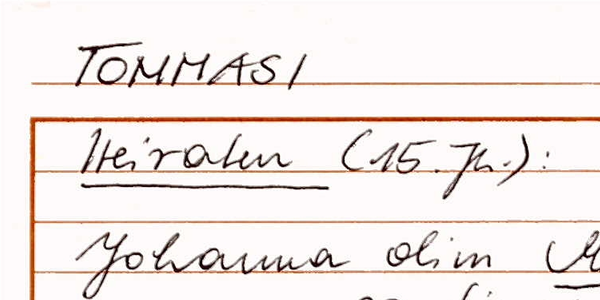 TOMMASI
Heiraten (15. Jh.):
Johanna olim